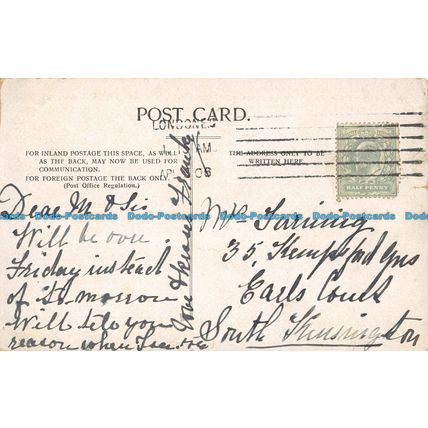 POST CARD.
LONDON.E.C
AM
AP 06
FOR INLAND POSTAGE THIS SPACE, AS WELL
AS THE BACK, MAY NOW BE USED FOR
COMMUNICATION.
FOR FOREIGN POSTAGE THE BACK ONLY.
(Post Office Regulation.)
THE ADDRESS ONLY TO BE
WRITTEN HERE.
HALF PENNY
Dear M & Sis
Will be over
Friday instead
of to morrow
Will tell you
reason when I see
35, Kempsford Gns
Earls Court
South Kensington
Dodo-Postcards Dodo-Postcards Dodo-Postcards Dodo-Postcards